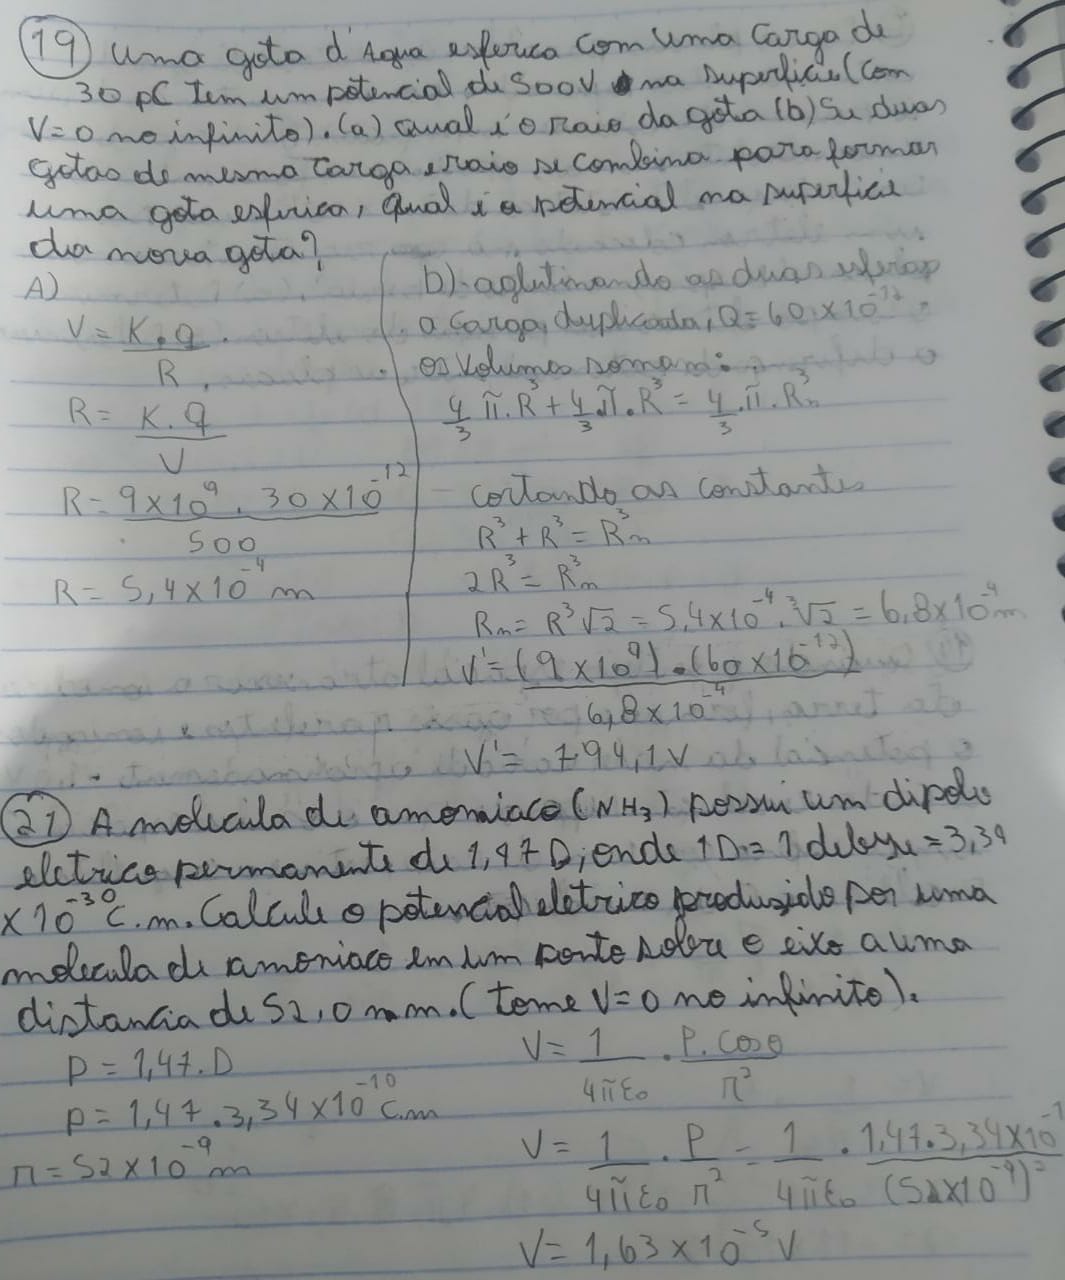 19 Uma gota d'Agua esferica com uma Carga de
30 pC Tem um potencial de 500V na superficie (com
V=0 no infinito). (a) qual é o raio da gota (b) Se duas
gotas de mesma Carga e raio se combina para formar
uma gota esferica, qual é o potencial na superficie
da nova gota?
A)
V = K.q
R
R = K.q
V
R = 9x10⁹ . 30x10⁻¹²
500
R = 5,4x10⁻⁴ m
b) aglutinando as duas esferas
a carga, duplicada, Q = 60x10⁻¹²
os volumes somam:
4/3 π.R³ + 4/3 .π.R³ = 4/3 .π.Rn³
cortando as constantes
R³ + R³ = Rn³
2R³ = Rn³
Rn = R³√2 = 5,4x10⁻⁴ . ³√2 = 6,8x10⁻⁴m
V' = (9x10⁹).(60x10⁻¹²)
6,8x10⁻⁴
V' = 794,1V
21 A molecula de amoniaco (NH₃) possui um dipolo
eletrico permanente de 1,47 D, onde 1D = 1 debye = 3,34
x10⁻³⁰ C.m. Calcule o potencial eletrico produzido por uma
molecula de amoniaco em um ponto sobre o eixo a uma
distancia de 52,0 nm. (tome V=0 no infinito).
P = 1,47.D
P = 1,47.3,34x10⁻¹⁰ C.m
r = 52x10⁻⁹ m
V = 1/4πε₀ . P.cosθ/r²
V = 1/4πε₀ . P/r² = 1/4πε₀ . 1,47.3,34x10⁻¹/(52x10⁻⁹)²
V = 1,63x10⁻⁵ V